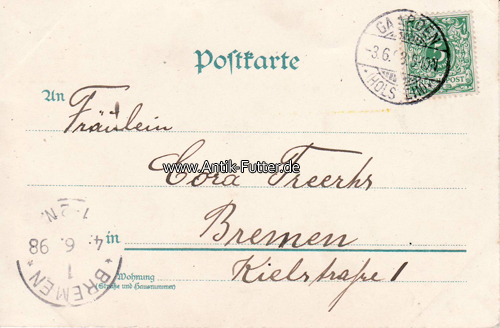 Postkarte
GAARDEN
-3.6.
HOLSTEIN
POST
An
Fräulein
www.Antik-Futter.de
Cora Freerks
in Bremen
Wohnung
(Straße und Hausnummer)
Kielstraße 1
4. 6. 98
1-2N.
1
* BREMEN *